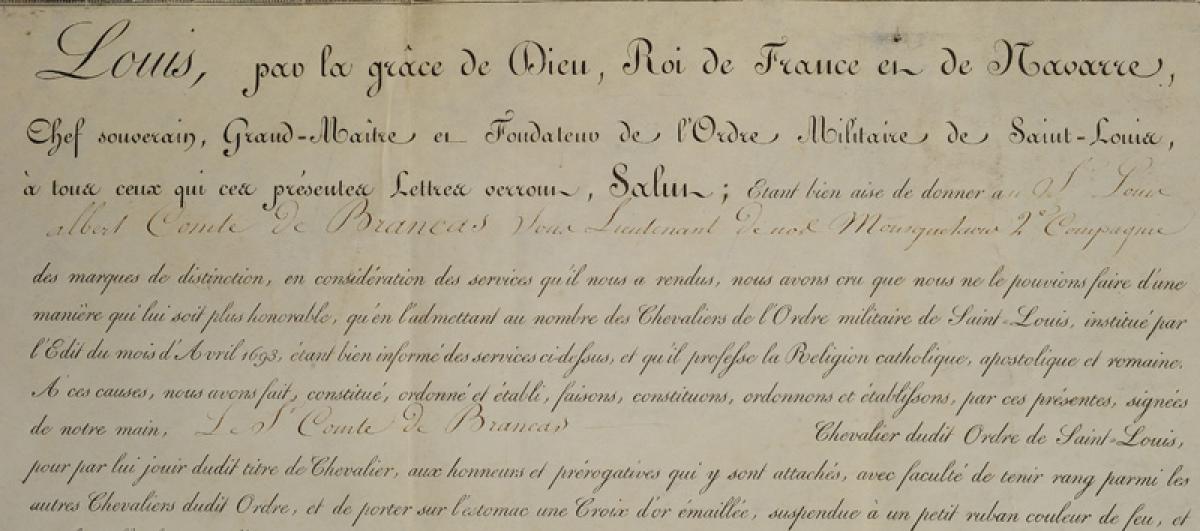 Louis, par la grâce de Dieu, Roi de France et de Navarre,
Chef souverain, Grand-Maître et Fondateur de l'Ordre Militaire de Saint-Louis,
à tous ceux qui ces présentes Lettres verront, Salut; Etant bien aise de donner au Sr. Louis
albert Comte de Brancas Sous Lieutenant de nos Mousquetaires 2e Compagnie
des marques de distinction, en considération des services qu'il nous a rendus, nous avons cru que nous ne le pouvions faire d'une
manière qui lui soit plus honorable, qu'en l'admettant au nombre des Chevaliers de l'Ordre militaire de Saint-Louis, institué par
l'Edit du mois d'Avril 1693, étant bien informé des services ci-dessus, et qu'il professe la Religion catholique, apostolique et romaine.
A ces causes, nous avons fait, constitué, ordonné et établi, faisons, constituons, ordonnons et établissons, par ces présentes, signées
de notre main, Le Sr Comte de Brancas Chevalier dudit Ordre de Saint-Louis,
pour par lui jouir dudit titre de Chevalier, aux honneurs et prérogatives qui y sont attachés, avec faculté de tenir rang parmi les
autres Chevaliers dudit Ordre, et de porter sur l'estomac une Croix d'or émaillée, suspendue à un petit ruban couleur de feu, et